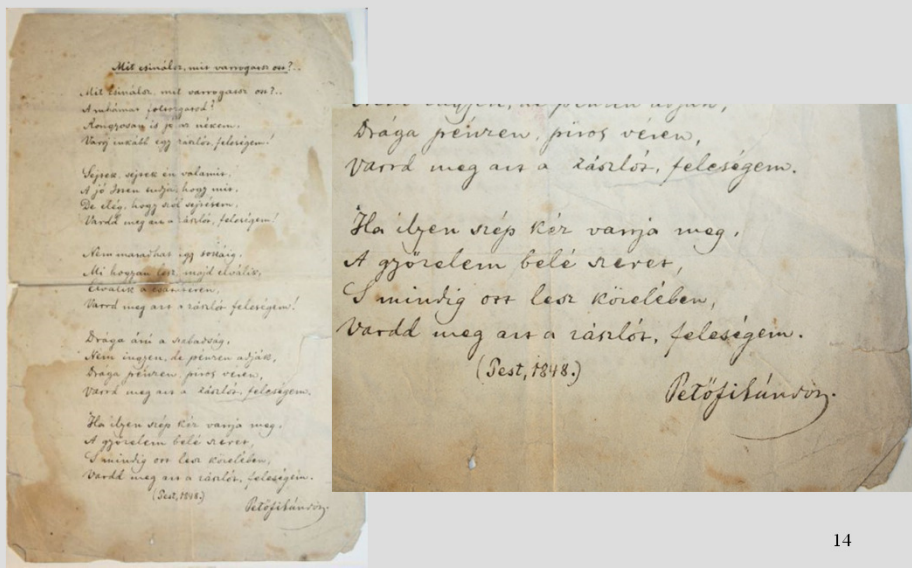 Mit csinálsz, mit varrogatsz ott?..
Mit csinálsz, mit varrogatsz ott?..
A ruhámat foltozgatod?
Rongyosan is jó az nékem.
Varrj inkább egy zászlót, feleségem!
Sejtek, sejtek én valamit,
A jó Isten tudja, hogy mit,
De elég, hogy szól sejtésem,
Varrd meg azt a zászlót, feleségem!
Nem maradhat így sokáig,
Mi hogyan lesz, majd elválik,
Elválik a
Varrd meg azt a zászlót feleségem!
Drága árú a szabadság,
Nem ingyen, de pénzen adják,
Drága pénzen, piros véren,
Varrd meg azt a zászlót, feleségem.
Ha ilyen szép kéz varrja meg,
A győzelem belé szeret,
S mindig ott lesz közelében,
Varrd meg azt a zászlót, feleségem.
(Pest, 1848.)
Petőfi Sándor.
Nem ingyen, de pénzen adják,
Drága pénzen, piros véren,
Varrd meg azt a zászlót, feleségem.
Ha ilyen szép kéz varrja meg,
A győzelem belé szeret,
S mindig ott lesz közelében,
Varrd meg azt a zászlót, feleségem.
(Pest, 1848.)
Petőfi Sándor.
14